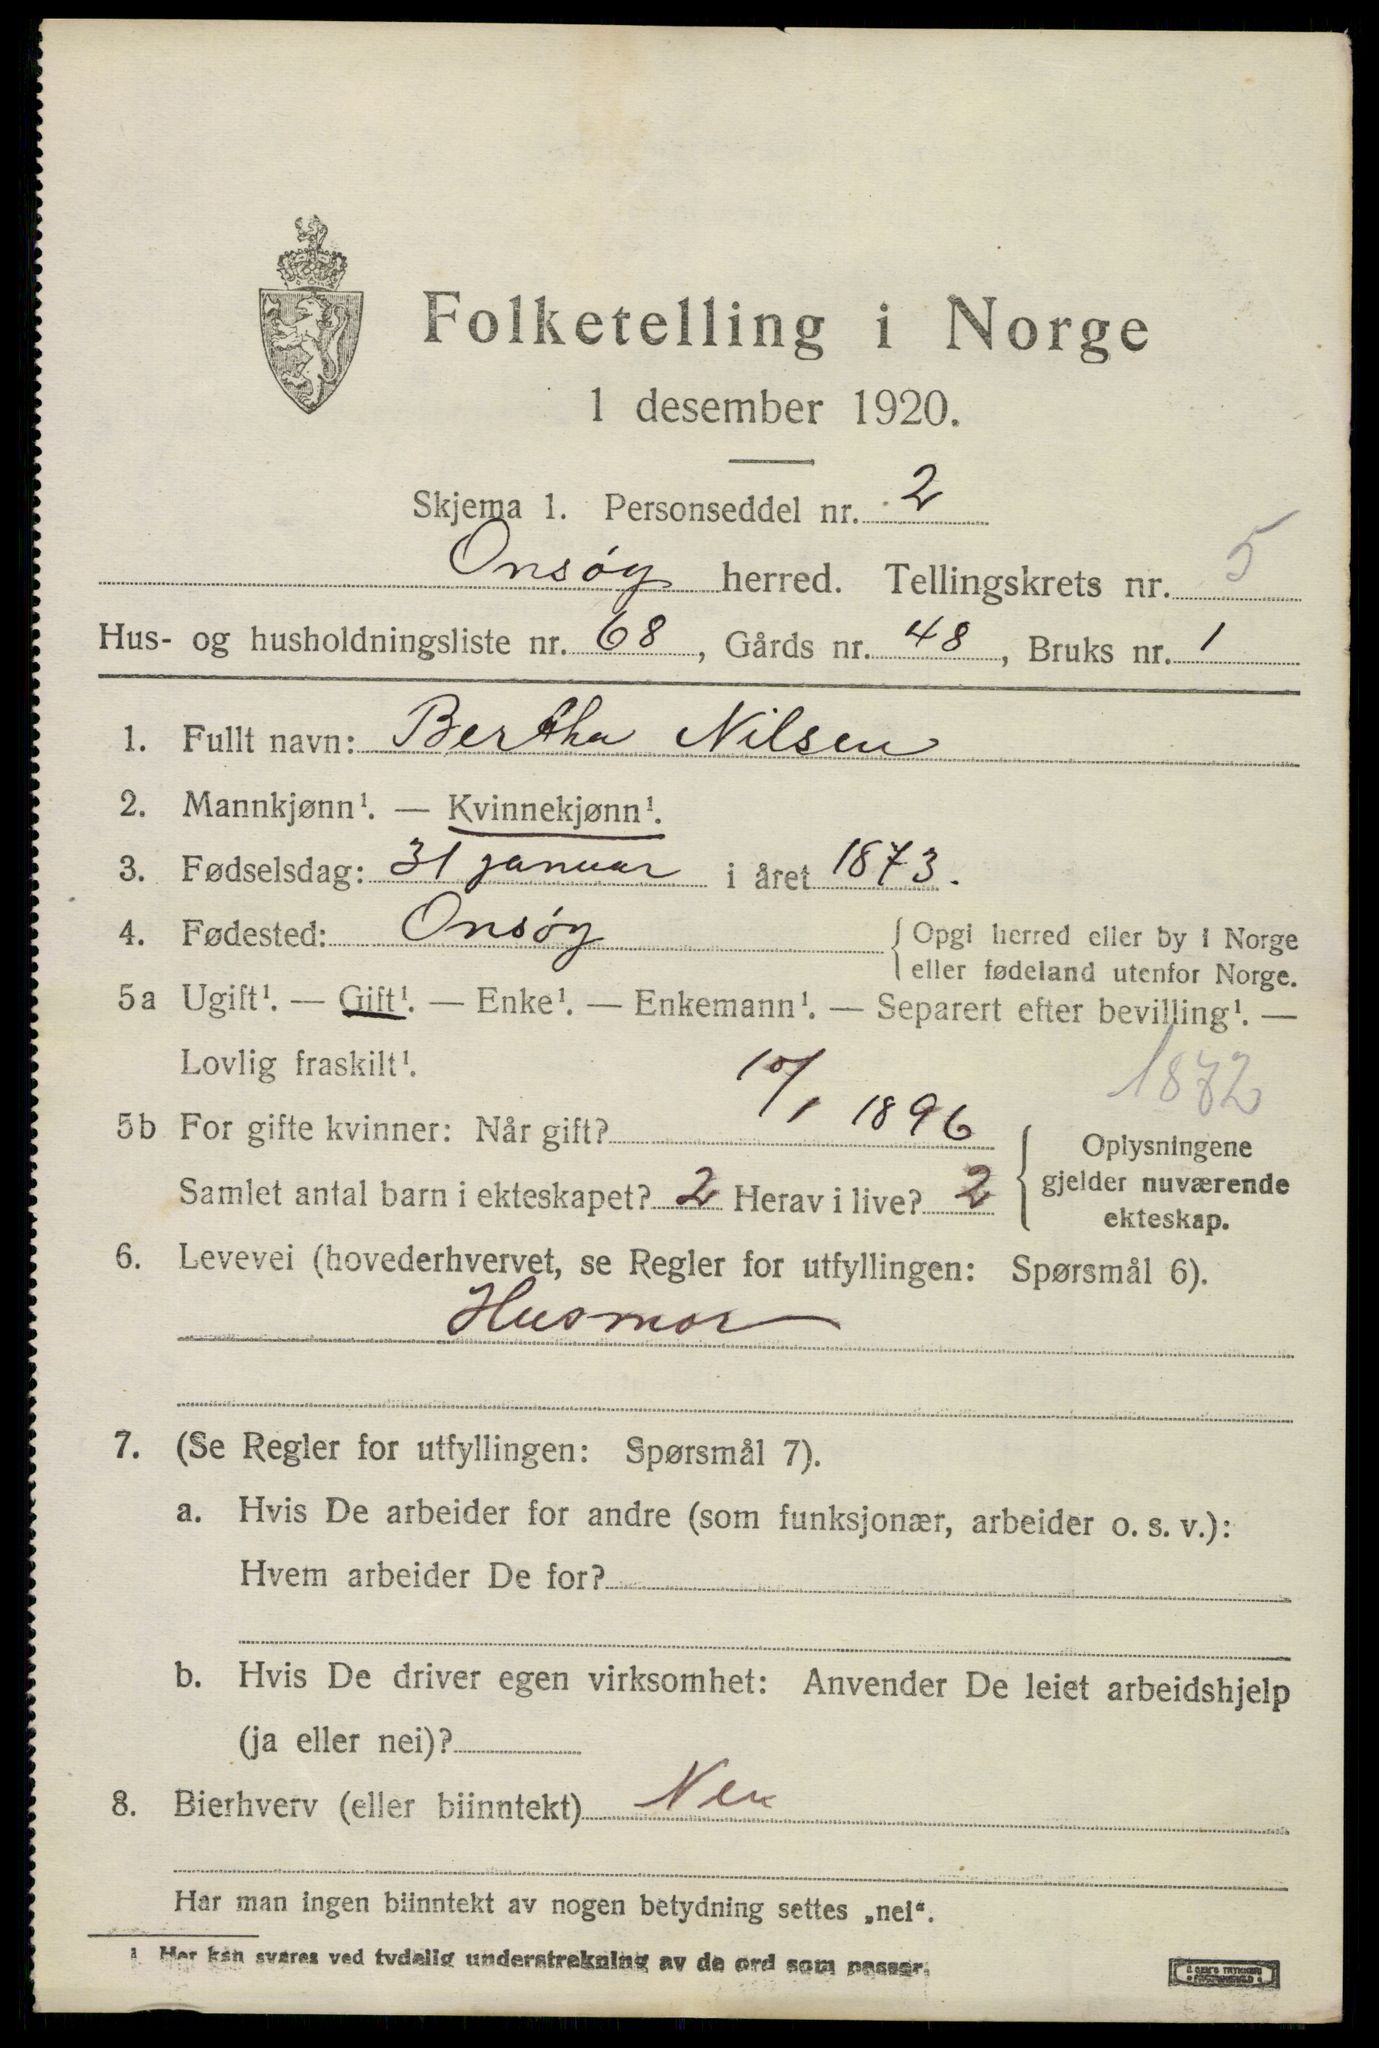 Folketelling i Norge
1 desember 1920.
Skjema 1. Personseddel nr. 2
Onsøy herred. Tellingskrets nr. 5
Hus- og husholdningsliste nr. 68, Gårds nr. 48, Bruks nr. 1
1. Fullt navn: Bertha Nilsen
2. Mannkjønn¹. — Kvinnekjønn¹.
3. Fødselsdag: 31 januar i året 1873.
4. Fødested: Onsøy { Opgi herred eller by i Norge
eller fødeland utenfor Norge.
5a Ugift¹. — Gift¹. — Enke¹. — Enkemann¹. — Separert efter bevilling¹. —
Lovlig fraskilt¹.
1872
5b For gifte kvinner: Når gift? 10/1 1896
Samlet antal barn i ekteskapet? 2 Herav i live? 2
{ Oplysningene
gjelder nuværende
ekteskap.
6. Levevei (hovederhvervet, se Regler for utfyllingen: Spørsmål 6).
Husmor
7. (Se Regler for utfyllingen: Spørsmål 7).
a. Hvis De arbeider for andre (som funksjonær, arbeider o. s. v.):
Hvem arbeider De for?
b. Hvis De driver egen virksomhet: Anvender De leiet arbeidshjelp
(ja eller nei)?
8. Bierhverv (eller biinntekt) Nei
Har man ingen biinntekt av nogen betydning settes „nei“.
1 Her kan svares ved tydelig understrekning av de ord som passer.